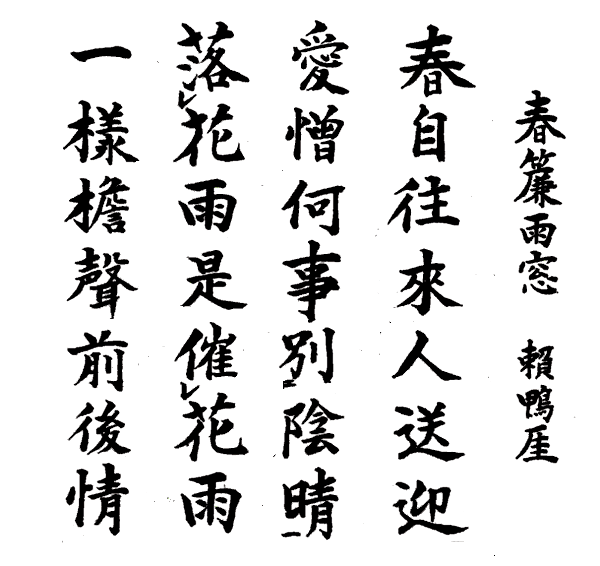 春簾雨窓　賴鴨厓
春自往來人送迎
愛憎何事別陰晴
落レ花雨是催レ花雨
一樣檐聲前後情